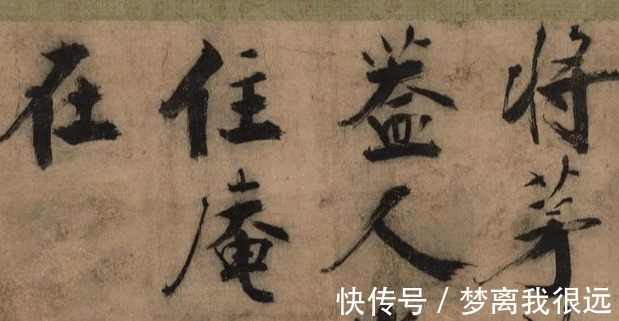 将茅
葢人
住庵
在
快传号 / 梦离我很远